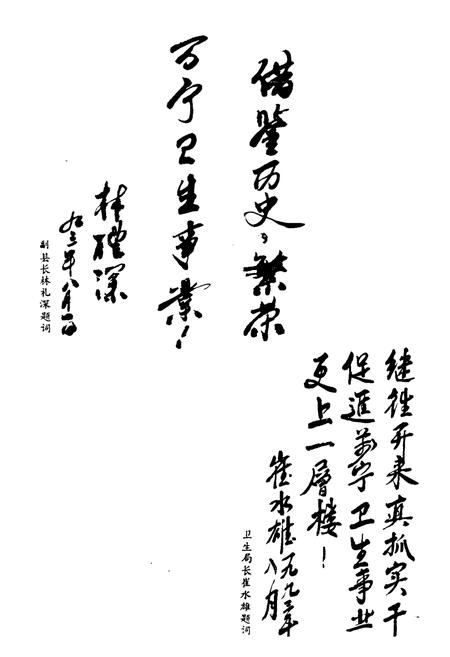 借鉴历史，繁荣
万宁卫生事业！
林礼深
九三年八月一日
副县长林礼深题词
继往开来真抓实干
促進萬宁卫生事业
更上一層楼！
崔水雄一九九三年
八月
卫生局长崔水雄题词